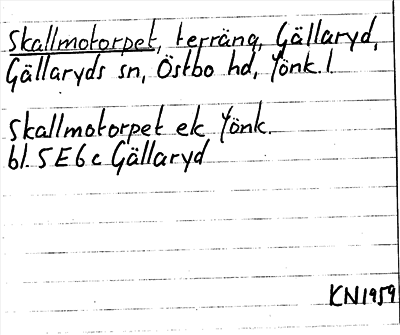 Skallmotorpet, terräng, Gällaryd,
Gällaryds sn, Östbo hd, Jönk. l.
Skallmotorpet ek Jönk.
bl. 5E6c Gällaryd
KN1959